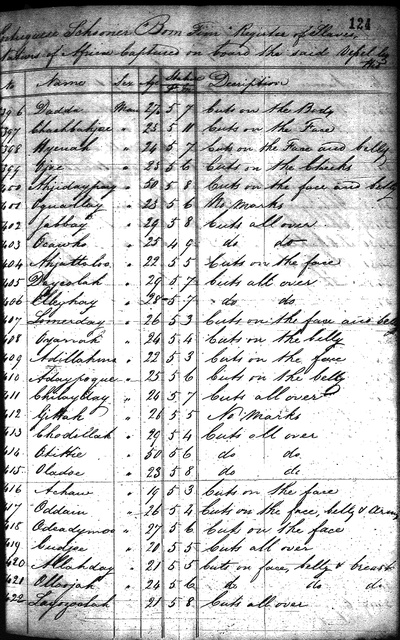 124
Portuguese Schooner "Bom Fim" Register of Slaves,
Natives of Africa Captured on board the said Vessel by
No Name Sex Age Stature Description
396 Dadda Man 27 5 7 Cuts on the Body
397 " 25 5 11 Cuts on the Face
398 " 24 5 7 Cuts on the Face and belly
399 Ojoe " 25 5 6 Cuts on the Cheeks
400 " 30 5 8 Cuts on the face and belly
401 " 23 5 6 No Marks
402 Jabbay " 29 5 8 Cuts all over
403 Ocawho " 25 4 9 do do
404 Ahjattaloo " 22 5 5 Cuts on the face
405 " 29 5 7 Cuts all over
406 Elleyhay " 28 5 7 do do
407 Lomerday " 26 5 3 Cuts on the face and belly
408 " 24 5 4 Cuts on the belly
409 Adillahma " 22 5 3 Cuts on the face
410 Adaypoque " 25 5 6 Cuts on the belly
411 Chilayday " 26 5 7 Cuts all over
412 Gillah " 26 5 5 No Marks
413 Chodellah " 29 5 4 Cuts all over
414 Otittie " 30 5 6 do do
415 Oladoe " 23 5 8 do do
416 Achaw " 19 5 3 Cuts on the face
417 Oddain " 26 5 4 Cuts on the face, belly & arms
418 Odeadymoo " 27 5 6 Cuts on the face
419 Cudjoe " 20 5 5 Cuts all over
420 Allahday " 21 5 5 Cuts on face, belly & breast
421 Ollasjah " 24 5 6 do do do
422 " 21 5 8 Cuts all over